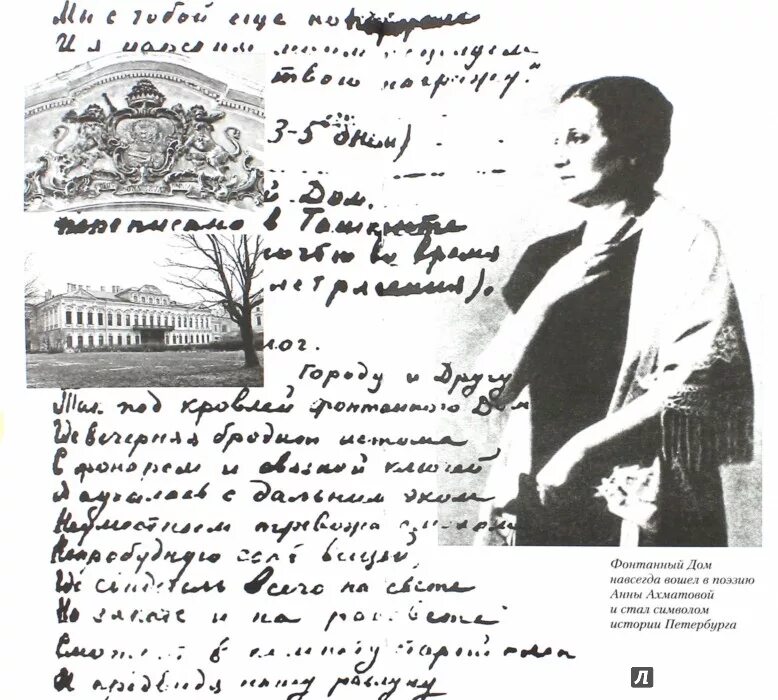 Мы с тобой еще
И я царским моим поцелуем
твою награжу."
3-5
й Дом.
в Ташкенте
ночью во время
лог.
Городу и Другу
Так под кровлей фонтанного Дом
Где вечерняя бродит истома
С фонарем и связкой ключей
Я аукалась с дальним эхом
Неуместным тревожа смехом
Непробудную сонь вещей,
Где свидетель всего на свете
На закате и на рассвете
Смотрит в комнату старый клен
И предвидя нашу разлуку
Фонтанный Дом
навсегда вошел в поэзию
Анны Ахматовой
и стал символом
истории Петербурга
Л